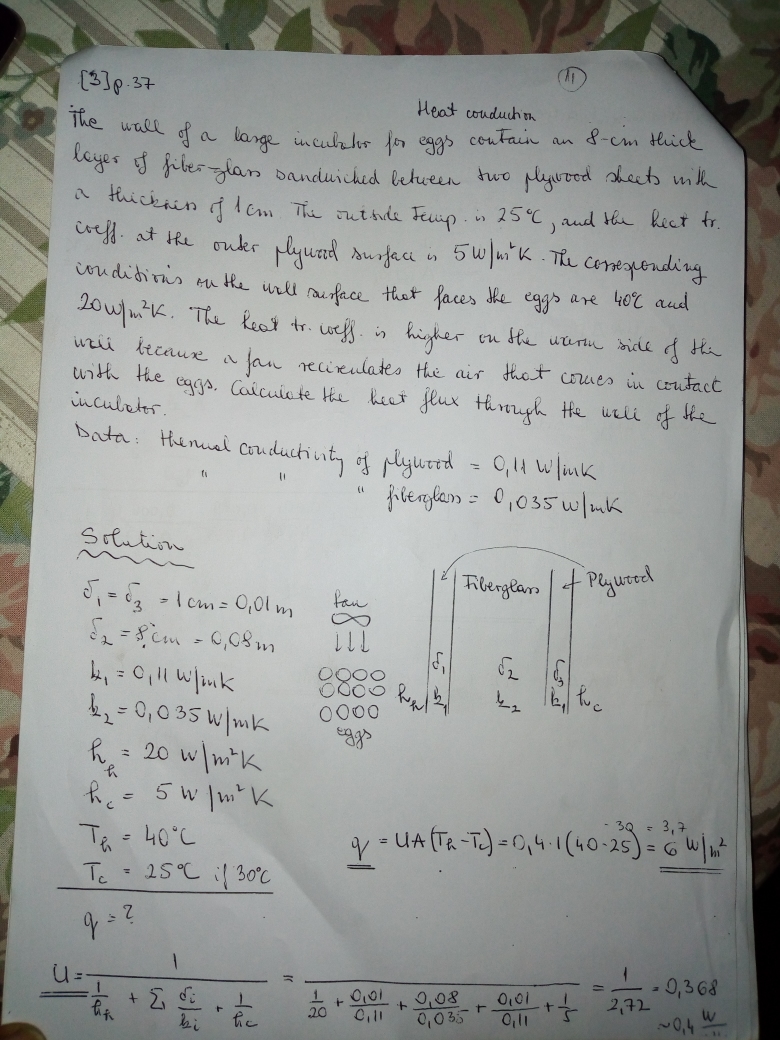 [3]p.37
11
Heat conduction
The wall of a large incubator for eggs contain an 8-cm thick
layer of fiber-glass sandwiched between two plywood sheets with
a thickness of 1cm. The outside temp. is 25°C, and the heat tr.
coeff. at the outer plywood surface is 5W/m²K. The corresponding
conditions on the wall surface that faces the eggs are 40°C and
20W/m²K. The heat tr. coeff. is higher on the warm side of the
wall because a fan recirculates the air that comes in contact
with the eggs. Calculate the heat flux through the wall of the
incubator.
Data: thermal conductivity of plywood = 0,11 W/mK
" " " fiberglass = 0,035 W/mK
Solution
δ₁ = δ₃ = 1cm = 0,01m
δ₂ = 8cm = 0,08m
k₁ = 0,11 W/mK
k₂ = 0,035 W/mK
hₕ = 20 W/m²K
h_c = 5 W/m²K
Tₕ = 40°C
T_c = 25°C if 30°C
q = ?
fan
eggs
Fiberglass
Plywood
δ₁ δ₂ δ₃
hₕ k₁ k₂ k₁ h_c
-30 = 3,7
q = UA(Tₕ-T_c) = 0,4·1(40-25) = 6 W/m²
U = 1/(1/hₕ + Σ δi/ki + 1/h_c) = 1/(1/20 + 0,01/0,11 + 0,08/0,035 + 0,01/0,11 + 1/5) = 1/2,72 = 0,368
~0,4 W